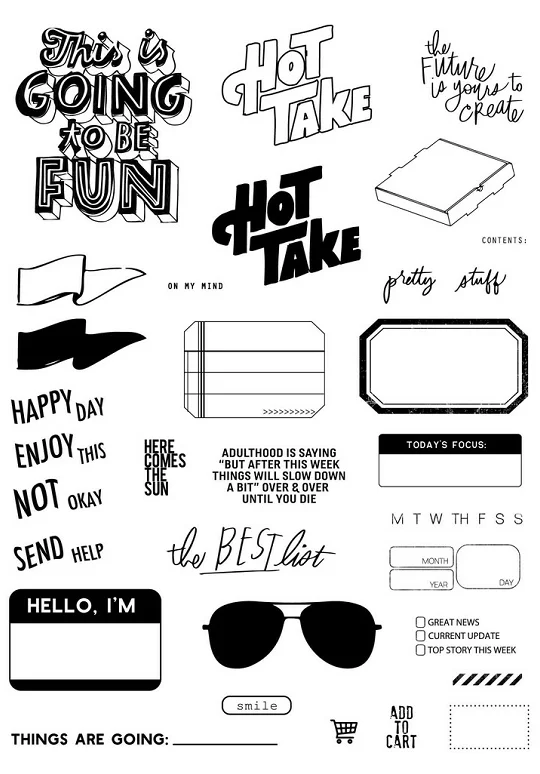 This is
GOING
to BE
FUN
HOT
TAKE
the
Future
is yours to
create
HOT
TAKE
CONTENTS:
ON MY MIND
pretty stuff
>>>>>>>>>>
HAPPY DAY
ENJOY THIS
NOT OKAY
SEND HELP
HERE
COMES
THE
SUN
ADULTHOOD IS SAYING
“BUT AFTER THIS WEEK
THINGS WILL SLOW DOWN
A BIT” OVER & OVER
UNTIL YOU DIE
TODAY'S FOCUS:
M T W TH F S S
the BEST list
MONTH
YEAR
DAY
HELLO, I'M
GREAT NEWS
CURRENT UPDATE
TOP STORY THIS WEEK
smile
THINGS ARE GOING:
ADD
TO
CART